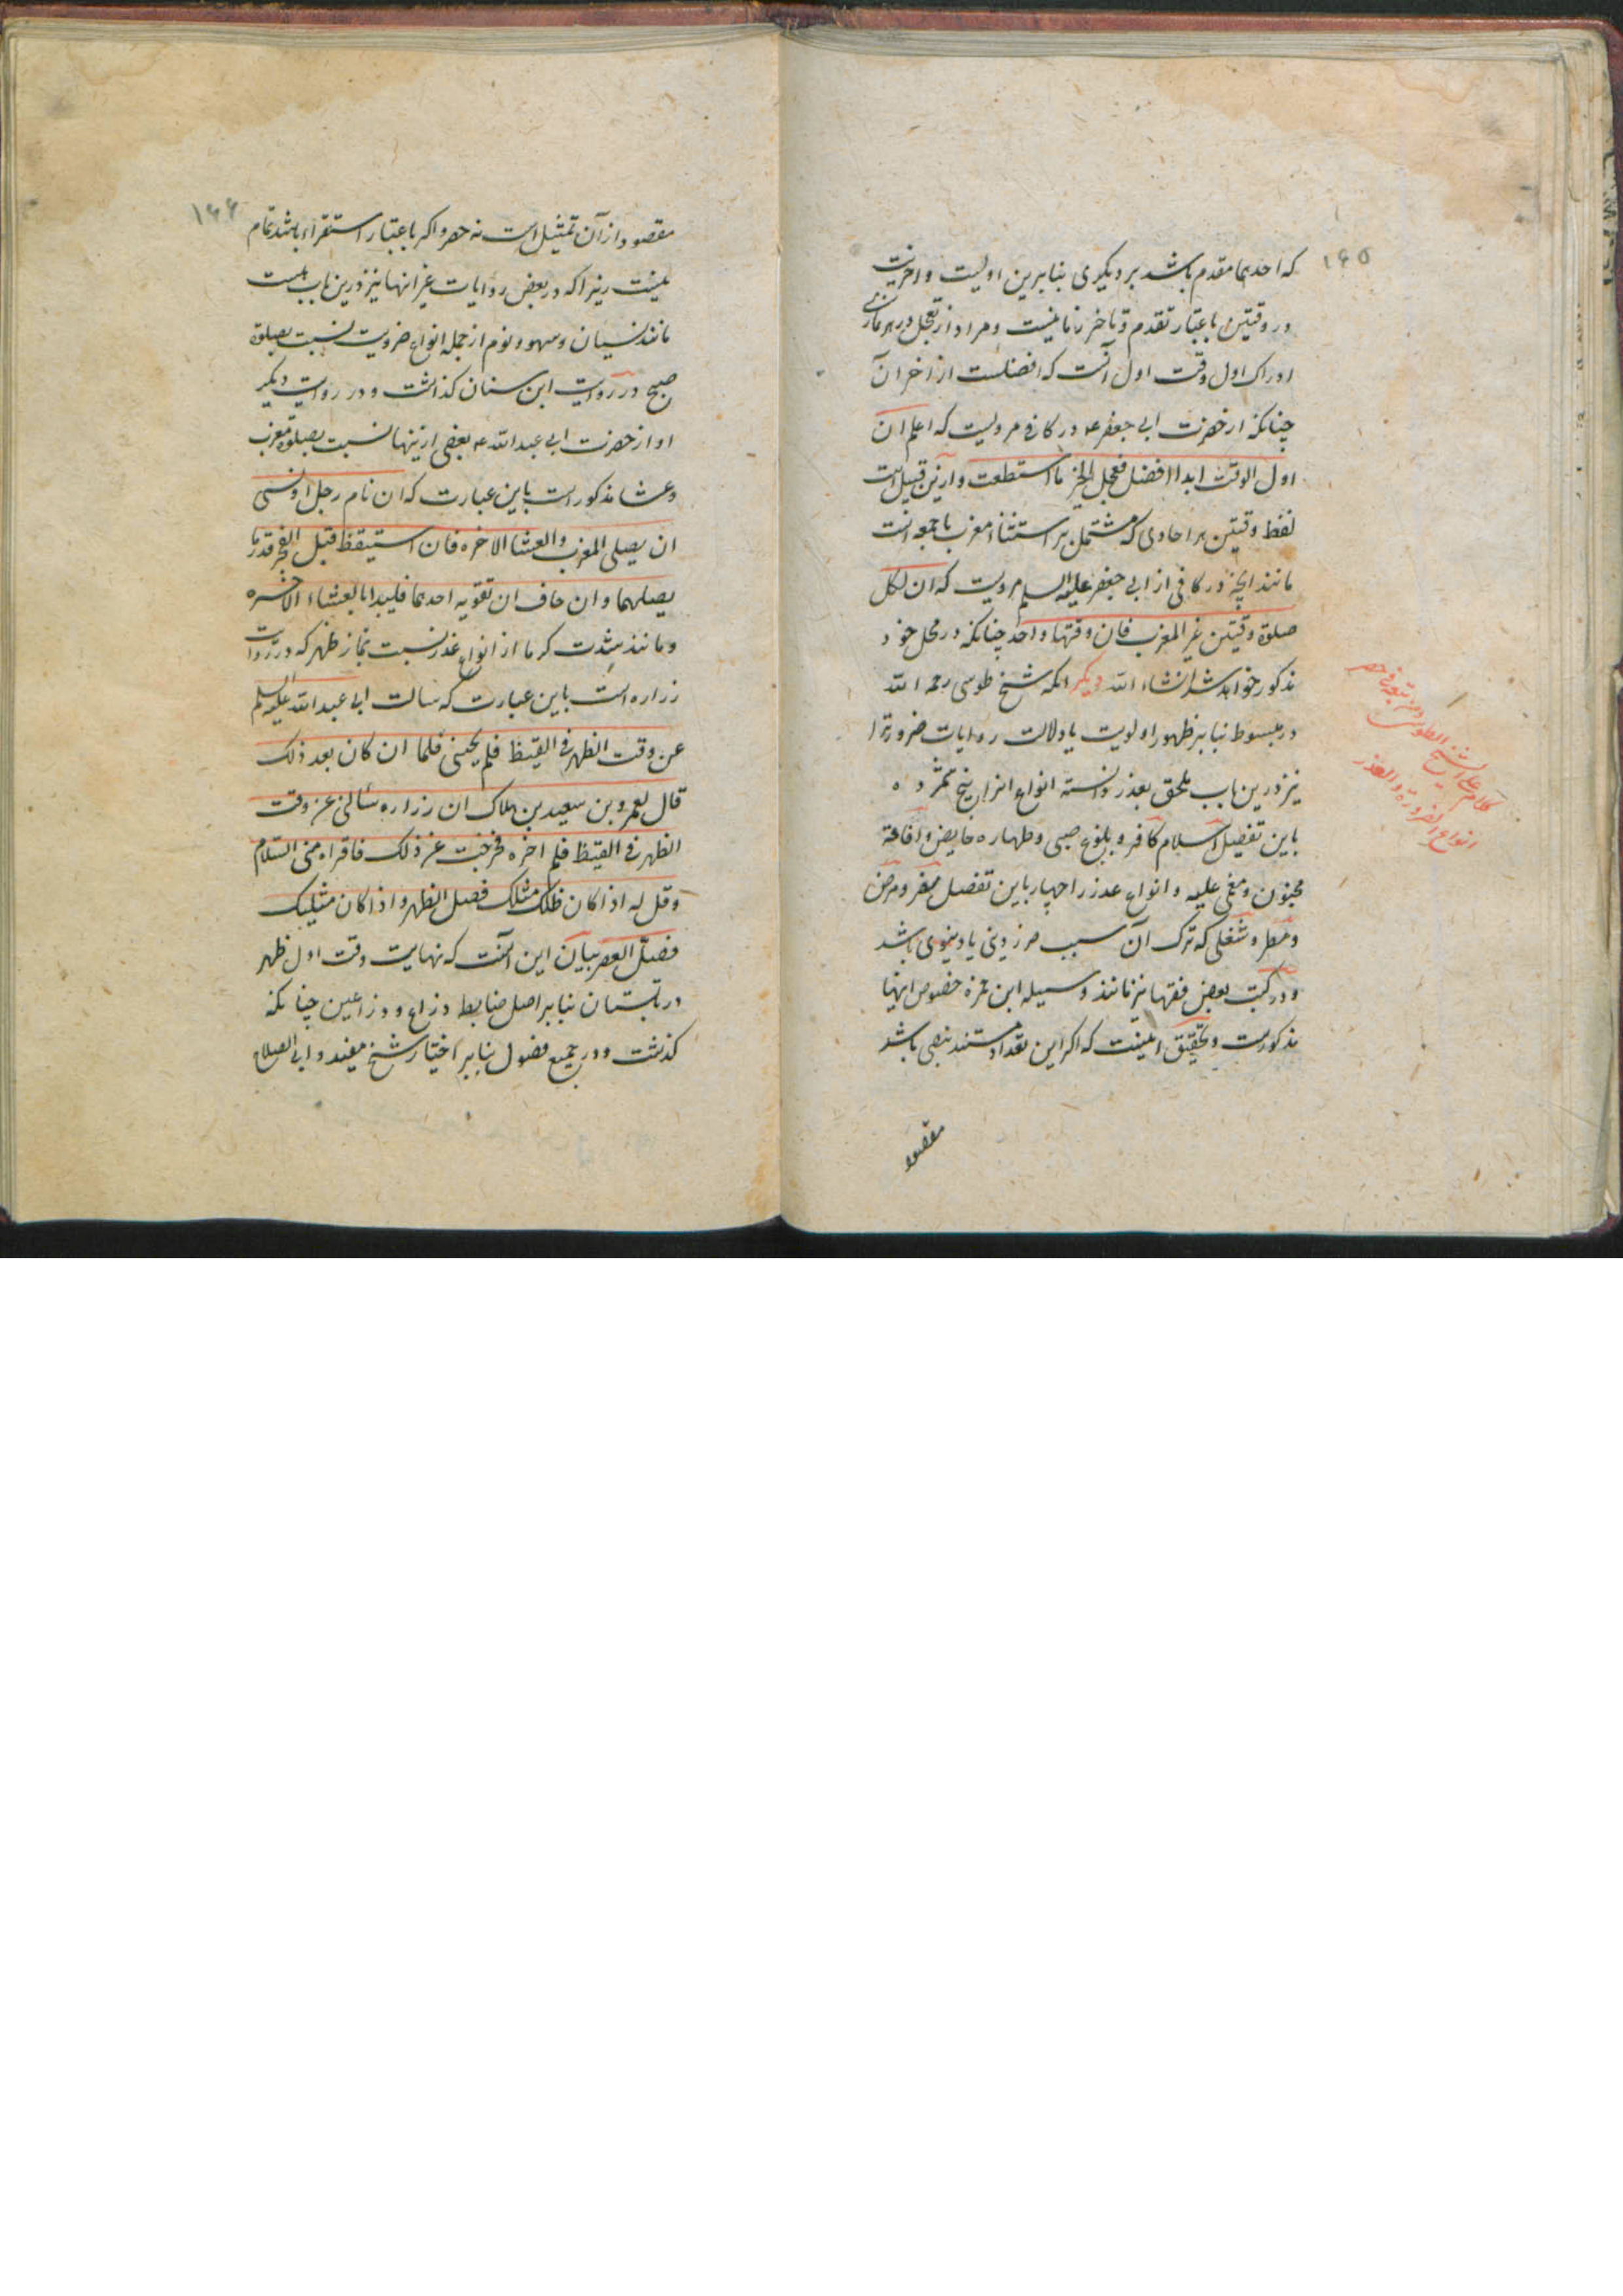 ۱۶۵
که احدیهما مقدم باشد بر دیگری بنابرین اولیت و اخریت
در وقتین باعتبار تقدم و تاخر زمانیست و مراد از تعجل در هر نمازی
ادراک اول وقت اول آنست که افضلست از اخر آن
چنانکه از حضرت ابی جعفر ع در کافی مرویست که اعلم ان
اول الوقت ابدا افضل فعجل الخیر ما استطعت و ازین قبیل است
لفظ وقتین در احادیثی که مشتمل بر استثناء مغرب یا جمعه است
مانند انچه در کافی از ابی جعفر علیه السلم مرویست که ان لکل
صلوة وقتین غیر المغرب فان وقتها واحد چنانکه در محل خود
مذکور خواهد شد انشاء الله دیگر انکه شیخ طوسی رحمه الله
در مبسوط بنابر ظهور اولویت یا دلالت روایات ضرورترا
نیز درین باب ملحق بعذر دانسته انواع انرا پنج شمرده
باین تفصیل اسلام کافر و بلوغ صبی و طهاره حایض و افاقة
مجنون و مغمی علیه و انواع عذر را چهار باین تفصیل سفر و مرض
و مطر و شغلی که ترک آن سبب ضرر دینی یا دنیوی باشد
و در کتب بعض فقها نیز مانند وسیله ابن حمزه خصوص اینها
مذکورست و تحقیق اینست که اگر این تعداد مستند بنصی باشد
مقصود
کلام علی الشیخ الطوسی و من تبعه فی حصر
انواع الضرورة و العذر
۱۶۶
مقصود از آن تمثیل است نه حصر و اگر باعتبار استقراء باشد تمام
نیست زیرا که در بعض روایات غیر انها نیز درین باب هست
مانند نسیان و سهو و نوم از جمله انواع ضرورت نسبت بصلوة
صبح در روایت ابن سنان گذشت و در روایت دیگر
او از حضرت ابی عبدالله ع بعضی ازینها نسبت بصلوة مغرب
و عشا مذکور است باین عبارت که ان نام رجل او نسی
ان یصلی المغرب و العشا الاخره فان استیقظ قبل الفجر قدر ما
یصلیهما و ان خاف ان تفوته احدیهما فلیبدا بالعشاء الاخره
و مانند شدت گرما از انواع عذر نسبت بنماز ظهر که در روایت
زراره است باین عبارت که سالت ابی عبدالله علیه السلم
عن وقت الظهر فی القیظ فلم یجبنی فلما ان کان بعد ذلک
قال لعمرو بن سعید بن هلاک ان زراره سالنی عن وقت
الظهر فی القیظ فلم اخبره فخرجت من ذلک فاقراه منی السلام
و قل له اذا کان ظلک مثلک فصل الظهر و اذا کان مثلیک
فصل العصر بیان این آنست که نهایت وقت اول ظهر
در تابستان بنابر اصل ضابط ذراع و ذراعین چنانکه
گذشت و در جمیع فصول بنابر اختیار شیخ مفید و ابی الصلاح